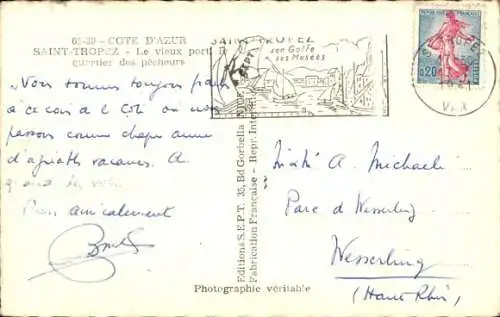 65-30 - COTE D'AZUR
SAINT-TROPEZ - Le vieux port
quartier des pêcheurs
Nous sommes toujours
à ce coin de la Côte où nous
passons comme chaque année
d'agréables vacances. A
quand de vous
Bien amicalement
Editions S.E.P.T. 35, Bd Gorbella
Fabrication Française - Repr. Inter
Photographie véritable
SAINT-TROPEZ
son Golfe
ses Musées
REPUBLIQUE FRANÇAISE
0,20
VAR
A. Michaeli
Parc d Wesserling
Wesserling
(Haut Rhin)